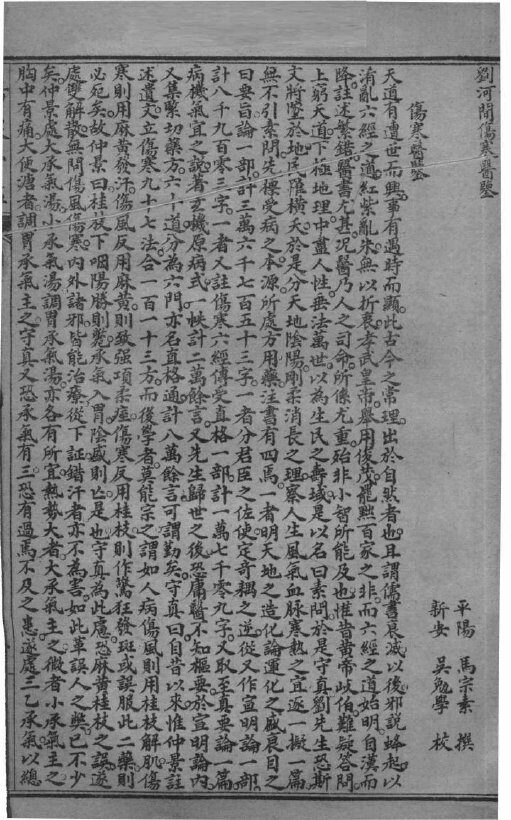 劉河間傷寒醫鑒
平陽 馬宗素 撰
新安 吳勉學 校
傷寒醫鑒
天道有遭世而興事有遇時而顯此古今之常理出於自然者也且謂儒書衰滅以後邪說蜂起以
淆亂六經之道紅紫亂朱無以折衷孝武皇帝舉用俊茂罷黜百家之非而六經之道始明自漢而
降註述繁鍇醫書尤甚況醫乃人之司命所係尤重殆非小智所能及也惟昔黃帝岐伯難疑答問
上窮天道下極地理中盡人性垂法萬世以為生民之壽域是以名曰素問於是守真劉先生恐斯
文將墜於地民罹橫夭於是分天地陰陽剛柔消長之理察人生風氣血脉寒熱之宜逐一擬一篇
無不引素問先標受病之本源所處方用藥注書有四焉一者明天地之造化論運化之盛衰目之
曰要旨論一部計三萬六千七百五十三字一者分君臣之位使定奇耦之逆從又作宣明論一部
計八千九百零三字一者又註傷寒六經傳受直格一部計一萬七千零九字又取至真要論一篇
病機氣宜之說著玄機原病式一帙計二萬餘言又先生歸世之後恐庸醫不知樞要於宣明論內
又集緊切藥方六十道分為六門亦名直格通計八萬餘言可謂勤矣守真曰自昔以來惟仲景註
述遺文立傷寒九十七法合一百一十三方而後學者莫能宗之謂如人病傷風則用桂枝解肌傷
寒則用麻黃發汗傷風反用麻黃則致強項柔痓傷寒反用桂枝則作驚狂發斑或誤服此二藥則
必死矣故仲景曰桂枝下咽陽勝則斃承氣入胃陰盛則亡是也守真為此慮恐麻黃桂枝之誤遂
處雙解散無問傷風傷寒內外諸邪皆能治療從下証錯汗者亦不為害如此革誤人之弊已不少
矣仲景處大承氣湯小承氣湯調胃承氣湯亦各有所宜熱勢大者大承氣主之微者小承氣主之
胸中有痛大便溏者調胃承氣主之守真又恐承氣有三恐有過焉不及之患遂處三乙承氣以總